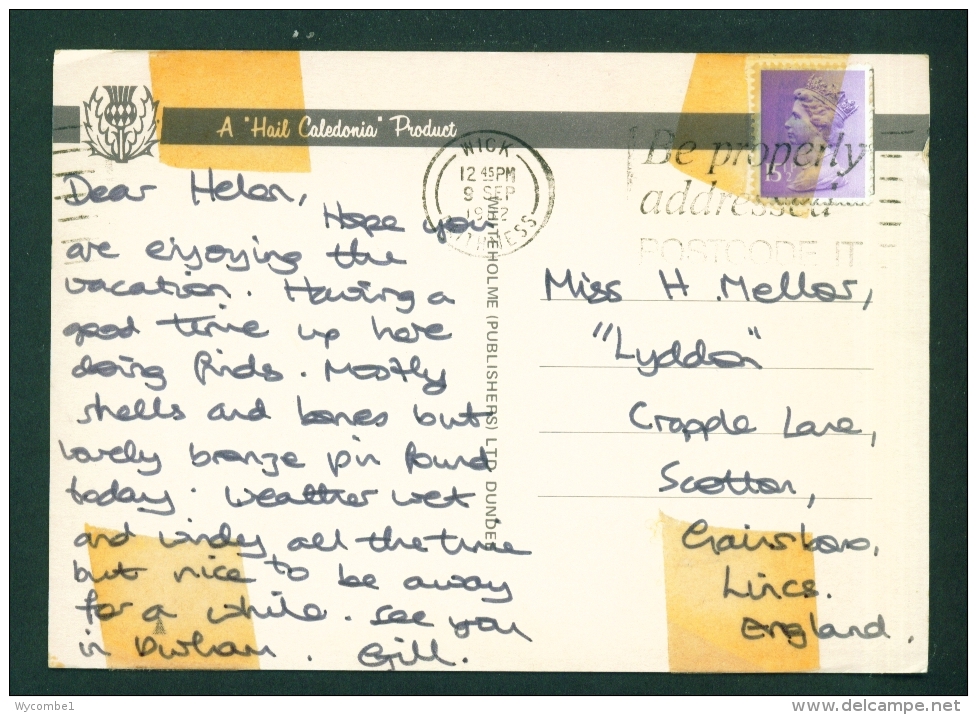 A "Hail Caledonia" Product
WICK
12 45PM
9 SEP
CAITHNESS
Be properly
addressed
POSTCODE IT
15½
Dear Helen,
Hope you
are enjoying the
vacation. Having a
good time up here
doing finds. Mostly
shells and bones but
lovely bronze pin found
today. Weather wet
and windy all the time
but nice to be away
for a while. See you
in Durham. Gill.
WHITEHOLME (PUBLISHERS) LTD. DUNDEE
Miss H. Mellor,
"Lyddon"
Crapple Lane,
Scotton,
Gainsboro,
Lincs.
England.
Wycombe1
www.delcampe.net